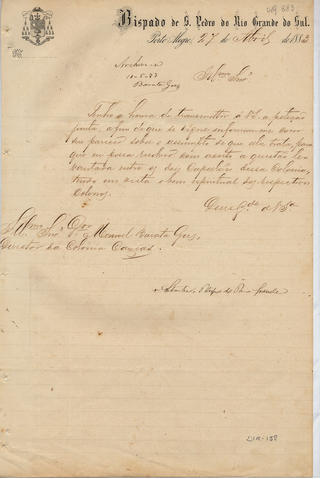 Bispado de S. Pedro do Rio Grande do Sul.
Porto Alegre, 27 de Abril de 1883
Archive-se
Barata Goes
Illmo Snr.
Tenho a honra de transmittir á VS. a petição
junta, a fim de que se digne informar-me com
seu parecer sobre o assumpto de que ella trata, para
que eu possa resolver com acerto a questão le-
vantada entre os dois Capellães dessa Colonia,
tendo em vista o bem espiritual dos respectivos
Colonos.
Deus Gde. a VSa
Illmo Snr. Dr. Manuel Barata Goes,
Director da Colonia Caxias.
Bispo do Rio Grande